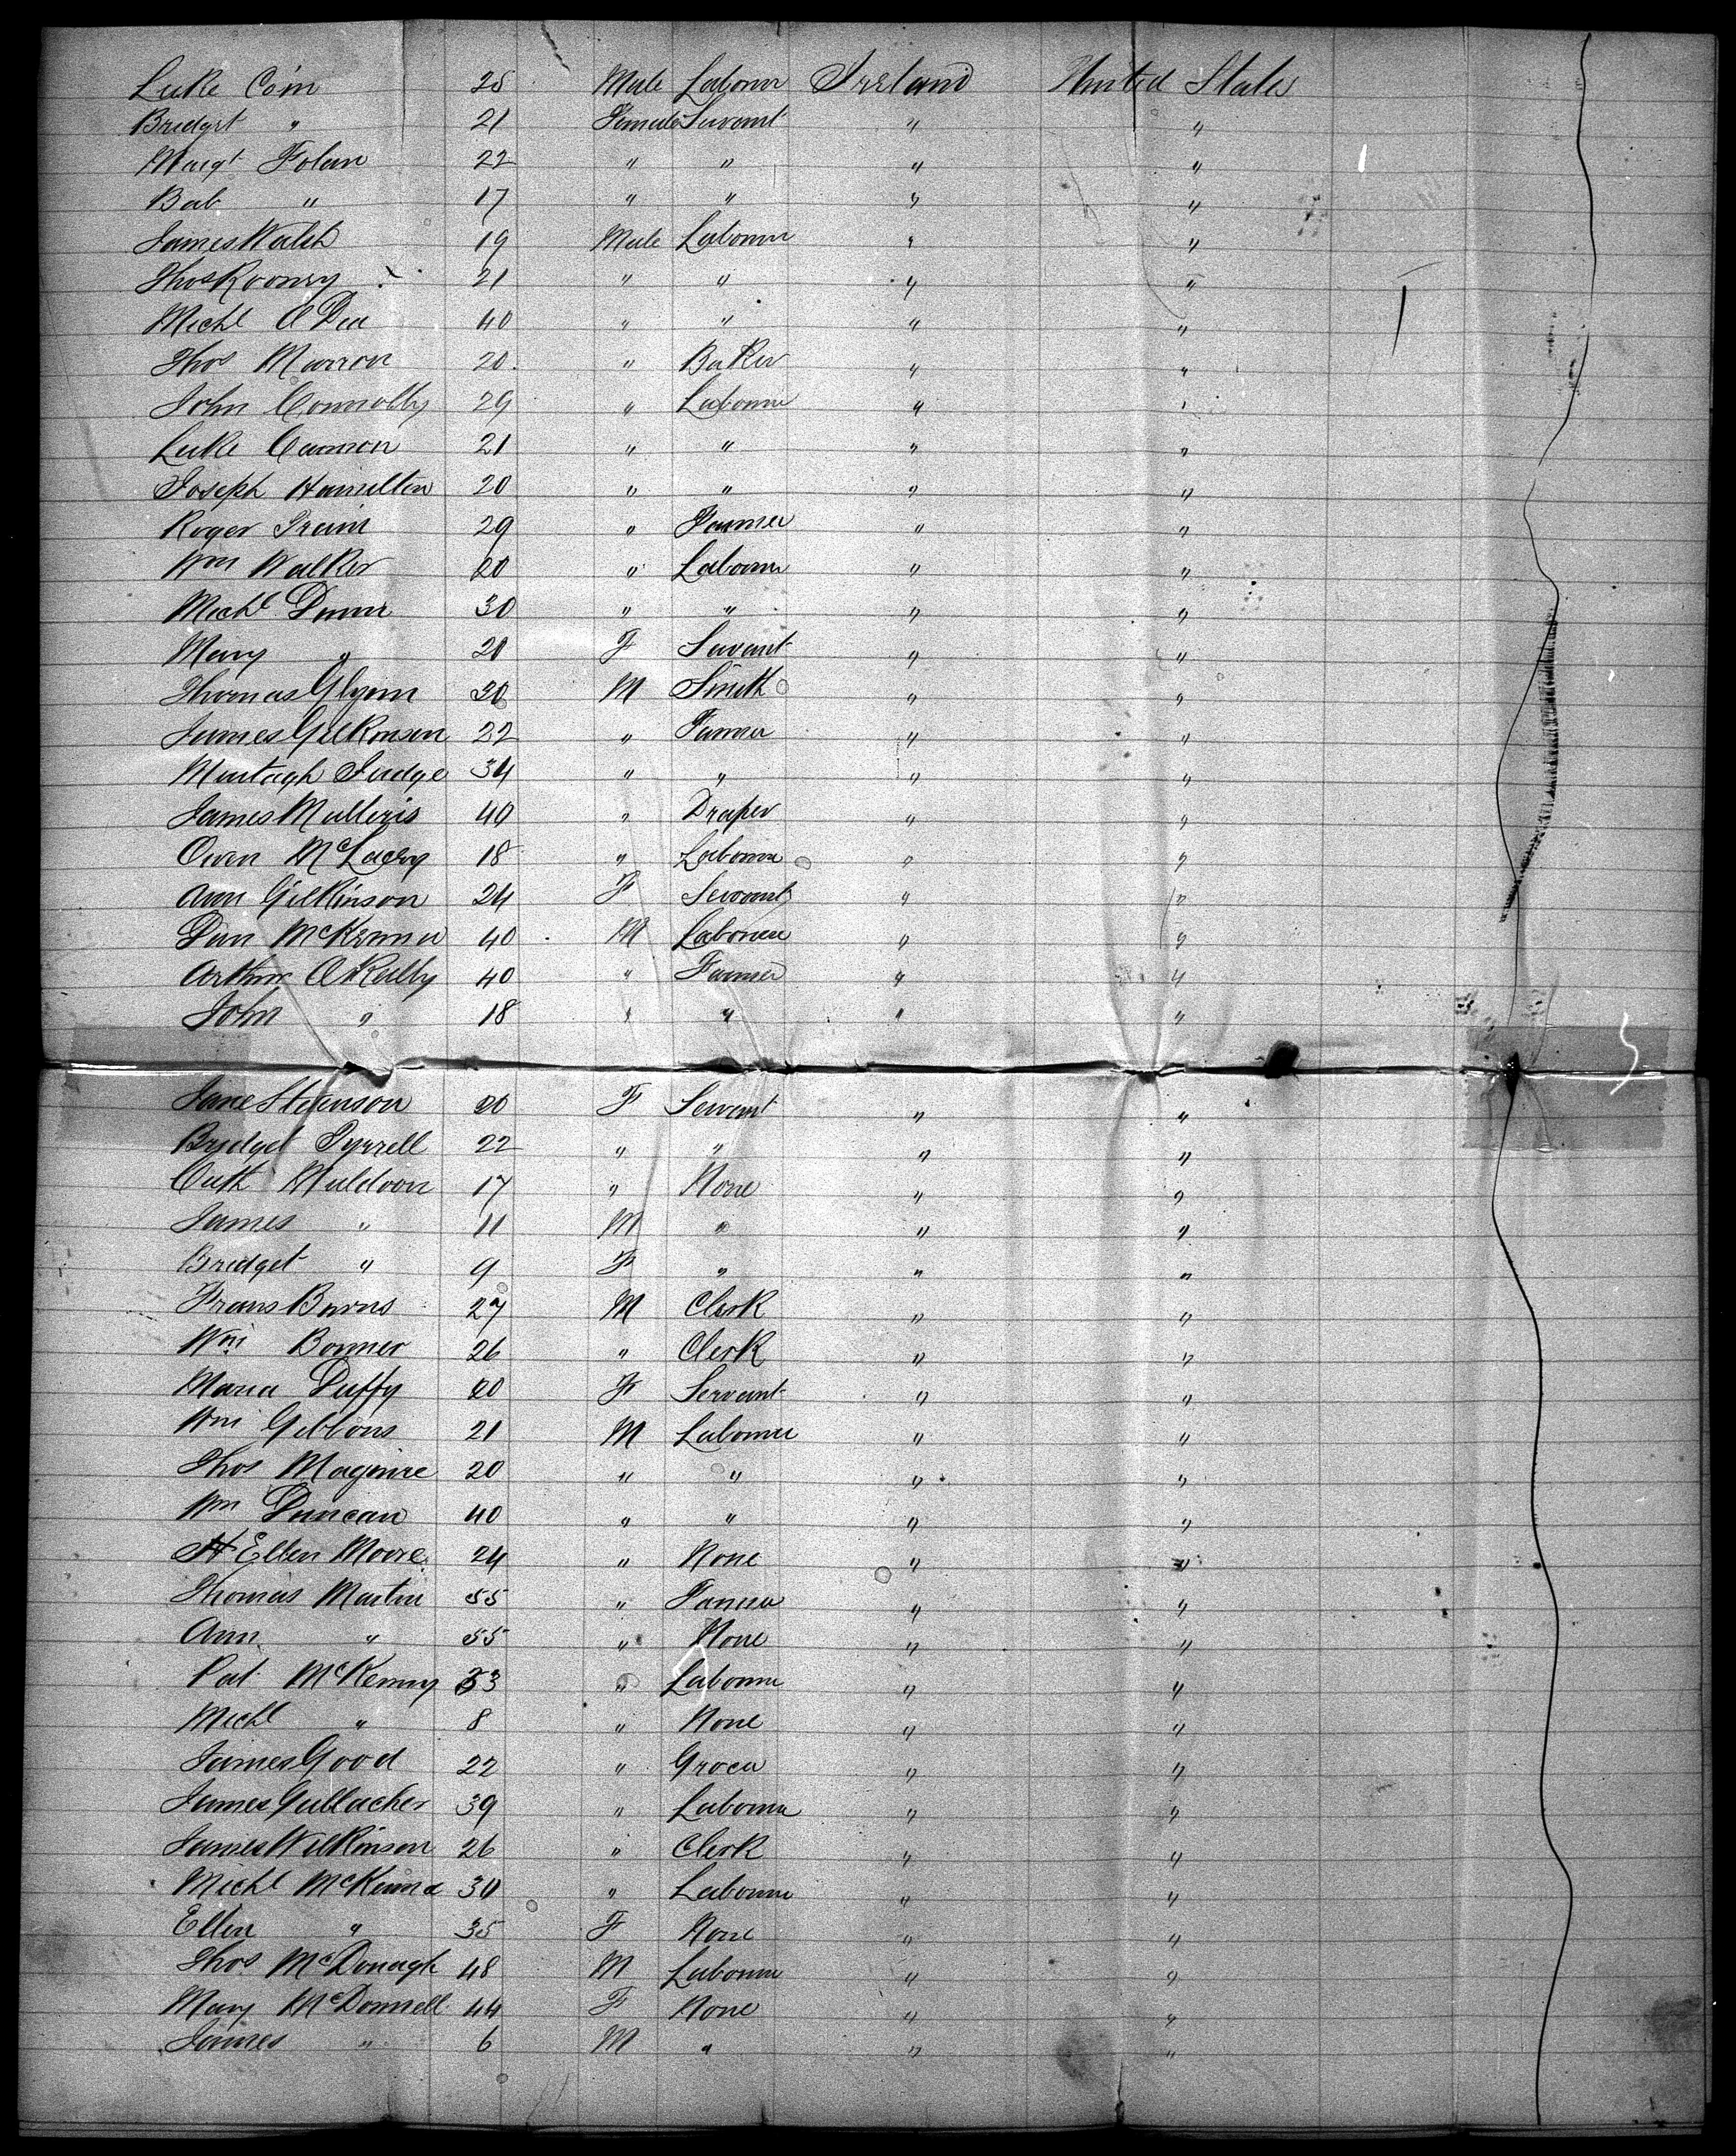 Luke Coin 25 Male Laborer Ireland United States
Bridget " 21 Female Servant " "
Margt Folan 22 " " " "
Bab " 17 " " " "
James Walsh 19 Male Laborer " "
Thos Rooney 21 " " " "
Michl O Dea 40 " " " "
Thos Marron 20 " Baker " "
John Connolly 29 " Laborer " "
Luke Cannon 21 " " " "
Joseph Hamilton 20 " " " "
Roger 29 " Farmer " "
Wm Walker 20 " Laborer " "
Michl Dunn 30 " " " "
Mary " 20 F Servant " "
Thomas Glynn 30 M Smith " "
James Gilkinson 22 " Farmer " "
Murtagh Judge 34 " " " "
James Mullins 40 " Draper " "
Owen 18 " Laborer " "
Ann Gilkinson 24 F Servant " "
Dan McKenna 40 M Laborer " "
Arthur O'Reilly 40 " Farmer " "
John " 18 " " " "
Jane Steenson 20 F Servant " "
Bridget Tyrrell 22 " " " "
Cath Muldoon 17 " None " "
James " 11 M " " "
Bridget " 9 F " " "
Frans Burns 27 M Clerk " "
Wm Bonner 26 " Clerk " "
Maria Duffy 20 F Servant " "
Wm Gibbons 21 M Laborer " "
Thos Maguire 20 " " " "
Wm Duncan 40 " " " "
Ellen Moore 24 " None " "
Thomas Martin 55 " Farmer " "
Ann " 55 " None " "
Pat McKenny 33 " Laborer " "
Michl " 8 " None " "
James Good 22 " Grocer " "
James Gallacher 39 " Laborer " "
James Wilkinson 26 " Clerk " "
Michl McKenna 30 " Laborer " "
Ellen " 35 F None " "
Thos McDonagh 48 M Laborer " "
Mary McDonnell 44 F None " "
James " 6 M " " "